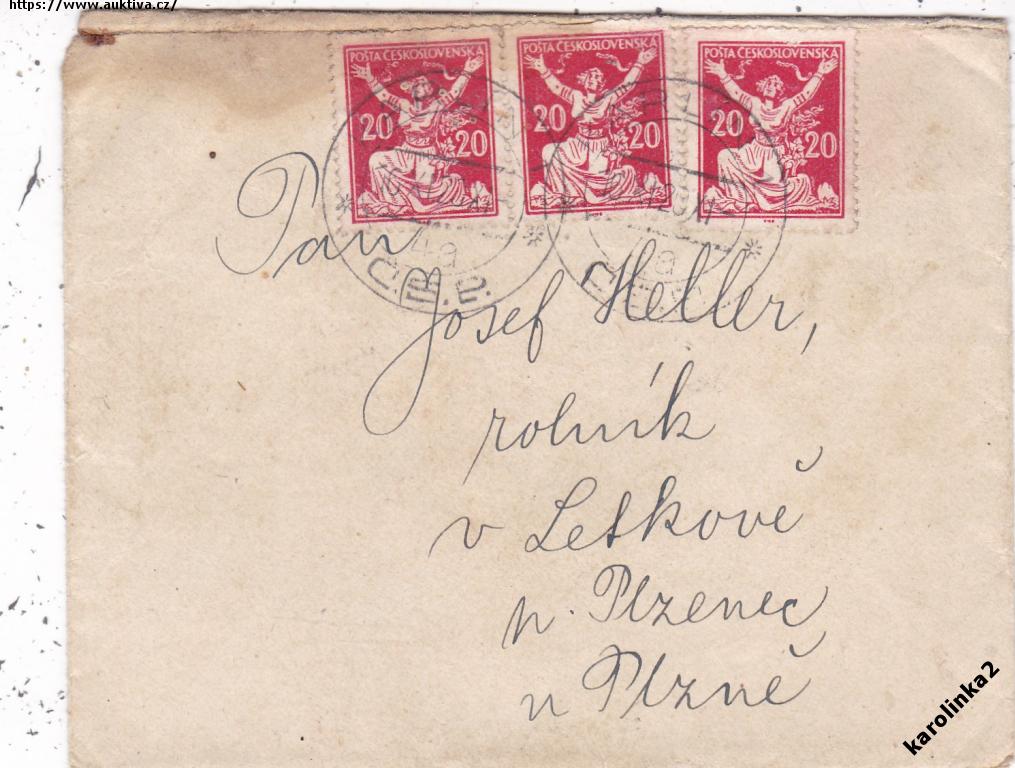 https://www.auktiva.cz/
POŠTA ČESKOSLOVENSKÁ POŠTA ČESKOSLOVENSKÁ POŠTA ČESKOSLOVENSKÁ
20 20 20 20 20 20
4a
Pan
Josef Heller,
rolník
v Letkově
p. Plzenec
u Plzně
karolinka2